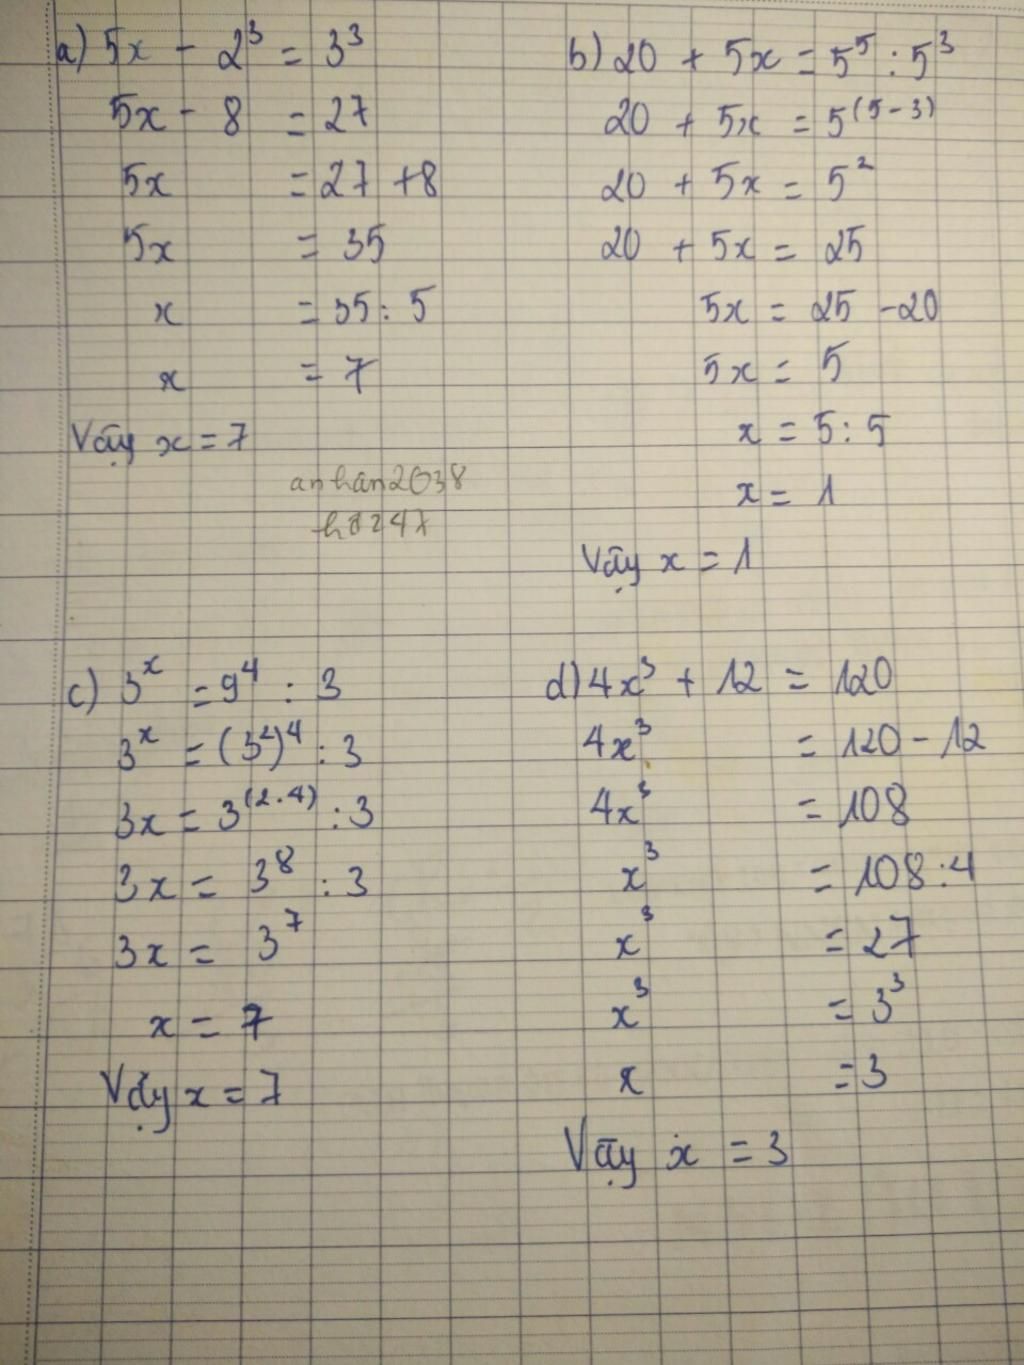 a) 5x - 2³ = 3³
5x - 8 = 27
5x = 27 + 8
5x = 35
x = 35 : 5
x = 7
Vậy x = 7
anhan2038
h8247
b) 20 + 5x = 5⁵ : 5³
20 + 5x = 5⁽⁵⁻³⁾
20 + 5x = 5²
20 + 5x = 25
5x = 25 - 20
5x = 5
x = 5 : 5
x = 1
Vậy x = 1
c) 3ˣ = 9⁴ : 3
3ˣ = (3²)⁴ : 3
3x = 3^(2.4) : 3
3x = 3⁸ : 3
3x = 3⁷
x = 7
Vậy x = 7
d) 4x³ + 12 = 120
4x³ = 120 - 12
4x³ = 108
x³ = 108 : 4
x³ = 27
x³ = 3³
x = 3
Vậy x = 3